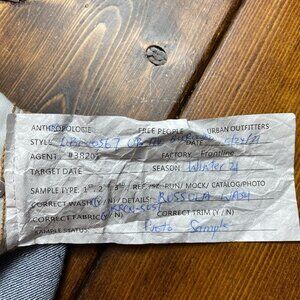 ANTHROPOLOGIE FREE PEOPLE URBAN OUTFITTERS
STYLE
AGENT #38201 FACTORY Frontline
TARGET DATE SEASON Winter 21
SAMPLE TYPE: 1st, 2nd 3rd / REF /SK-RUN/ MOCK/ CATALOG/PHOTO
CORRECT WASH (Y/ N)/ DETAILS: RUSSULA WASH
CORRECT FABRIC (Y / N) CORRECT TRIM (Y / N)
SAMPLE STATUS: Photo Sample